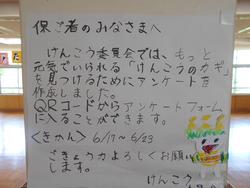 保護者のみなさまへ
けんこう委員会では、もっと
元気でいられる「けんこうのカギ」
を見つけるためにアンケートを
作成しました。
QRコードからアンケートフォーム
に入ることができます。
<きかん> 6/17～6/23
ごきょう力よろしくお願い
します。
けんこう